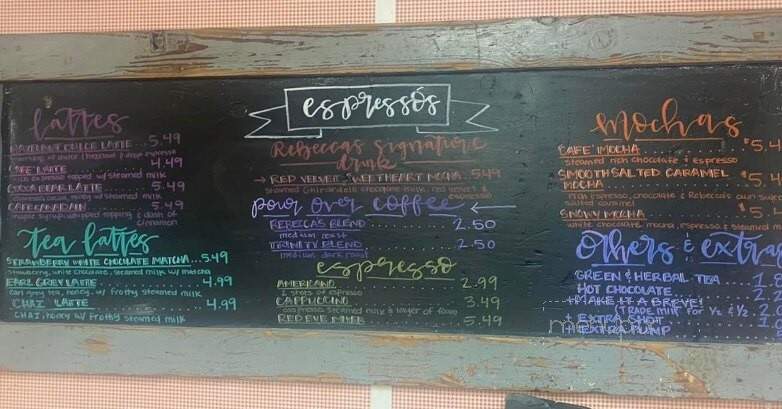 espressos
lattes
HAZELNUT DULCE LATTE ... 5.49
CAFE LATTE 4.49
rich espresso topped w/ steamed milk
COCOA BEAR LATTE ... 5.49
CAFE CANADIAN ... 5.49
maple syrup, whipped topping & dash of
cinnamon
tea lattes
STRAWBERRY WHITE CHOCOLATE MATCHA ... 5.49
strawberry, white chocolate, steamed milk w/ matcha
EARL GREY LATTE ... 4.99
earl grey tea, honey, w/ frothy steamed milk
CHAI LATTE ... 4.99
CHAI, honey w/ frothy steamed milk
Rebeccas Signature
drink
→ RED VELVET SWEETHEART MOCHA 5.49
steamed Ghirardelli chocolate milk, red velvet &
espresso
pour over coffee
REBECCAS BLEND ... 2.50
medium roast
TRINITY BLEND ... 2.50
medium dark roast
espresso
AMERICANO ... 2.99
2 shots of espresso
CAPPUCCINO ... 3.49
espresso, steamed milk & layer of foam
RED EYE ... 5.49
mochas
CAFE' MOCHA ... $5.4
steamed rich chocolate & espresso
SMOOTH SALTED CARAMEL
MOCHA ... $5.4
rich espresso, chocolate & Rebecca's own
salted caramel
SNOWY MOCHA ... $5.
white chocolate mocha, espresso & steamed m
Others & extra
GREEN & HERBAL TEA
HOT CHOCOLATE
+ MAKE IT A BREVE!
(TRADE MILK FOR ½ & ½
+ EXTRA SHOT
+ EXTRA PUMP